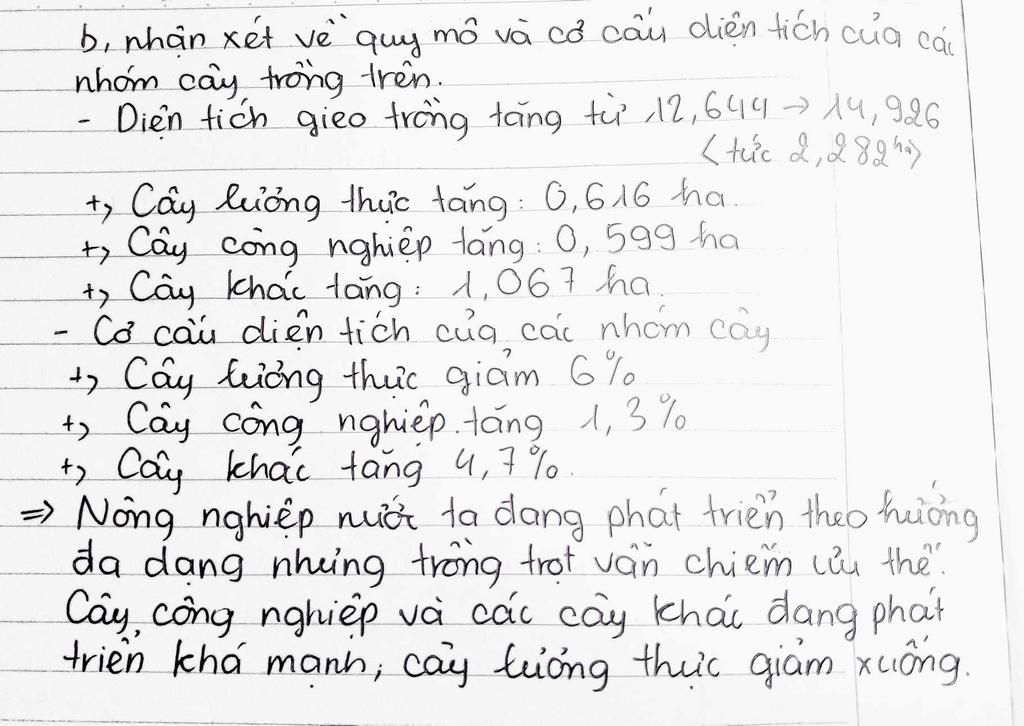 b, nhận xét về quy mô và cơ cấu diện tích của các
nhóm cây trồng trên.
- Diện tích gieo trồng tăng từ 12,644 → 14,926
<tức 2,282 ha>
+, Cây lương thực tăng: 0,616 ha.
+, Cây công nghiệp tăng: 0,599 ha
+, Cây khác tăng: 1,067 ha.
- Cơ cấu diện tích của các nhóm cây
+, Cây lương thực giảm 6%
+, Cây công nghiệp tăng 1,3%
+, Cây khác tăng 4,7%.
⇒ Nông nghiệp nước ta đang phát triển theo hướng
đa dạng nhưng trồng trọt vẫn chiếm ưu thế.
Cây công nghiệp và các cây khác đang phát
triển khá mạnh, cây lương thực giảm xuống.